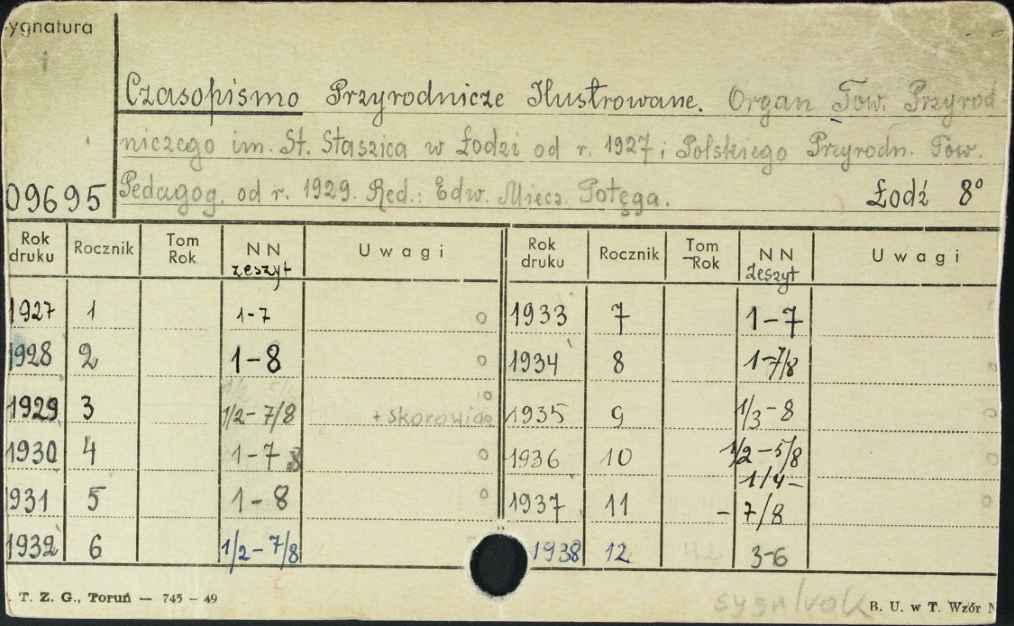 ygnatura
Czasopismo Przyrodnicze Ilustrowane. Organ Tow. Przyrod-
niczego im. St. Staszica w Łodzi od r. 1927 i Polskiego Przyrodn. Tow.
Pedagog. od r. 1929. Red.: Edw. Miecz. Potęga.
09695 Łódź 8°
Rok druku Rocznik Tom Rok NN zeszyt Uwagi Rok druku Rocznik Tom Rok NN zeszyt Uwagi
1927 1 1-7 1933 7 1-7
1928 2 1-8 1934 8 1-7/8
1929 3 1/2-7/8 1935 9 1/3-8
1930 4 1-7 8 1936 10 1/2-5/8
1931 5 1-8 1937 11 1/4-7/8
1932 6 1/2-7/8 1938 12 3-6
T. Z. G., Toruń — 745 - 49
B. U. w T. Wzór N